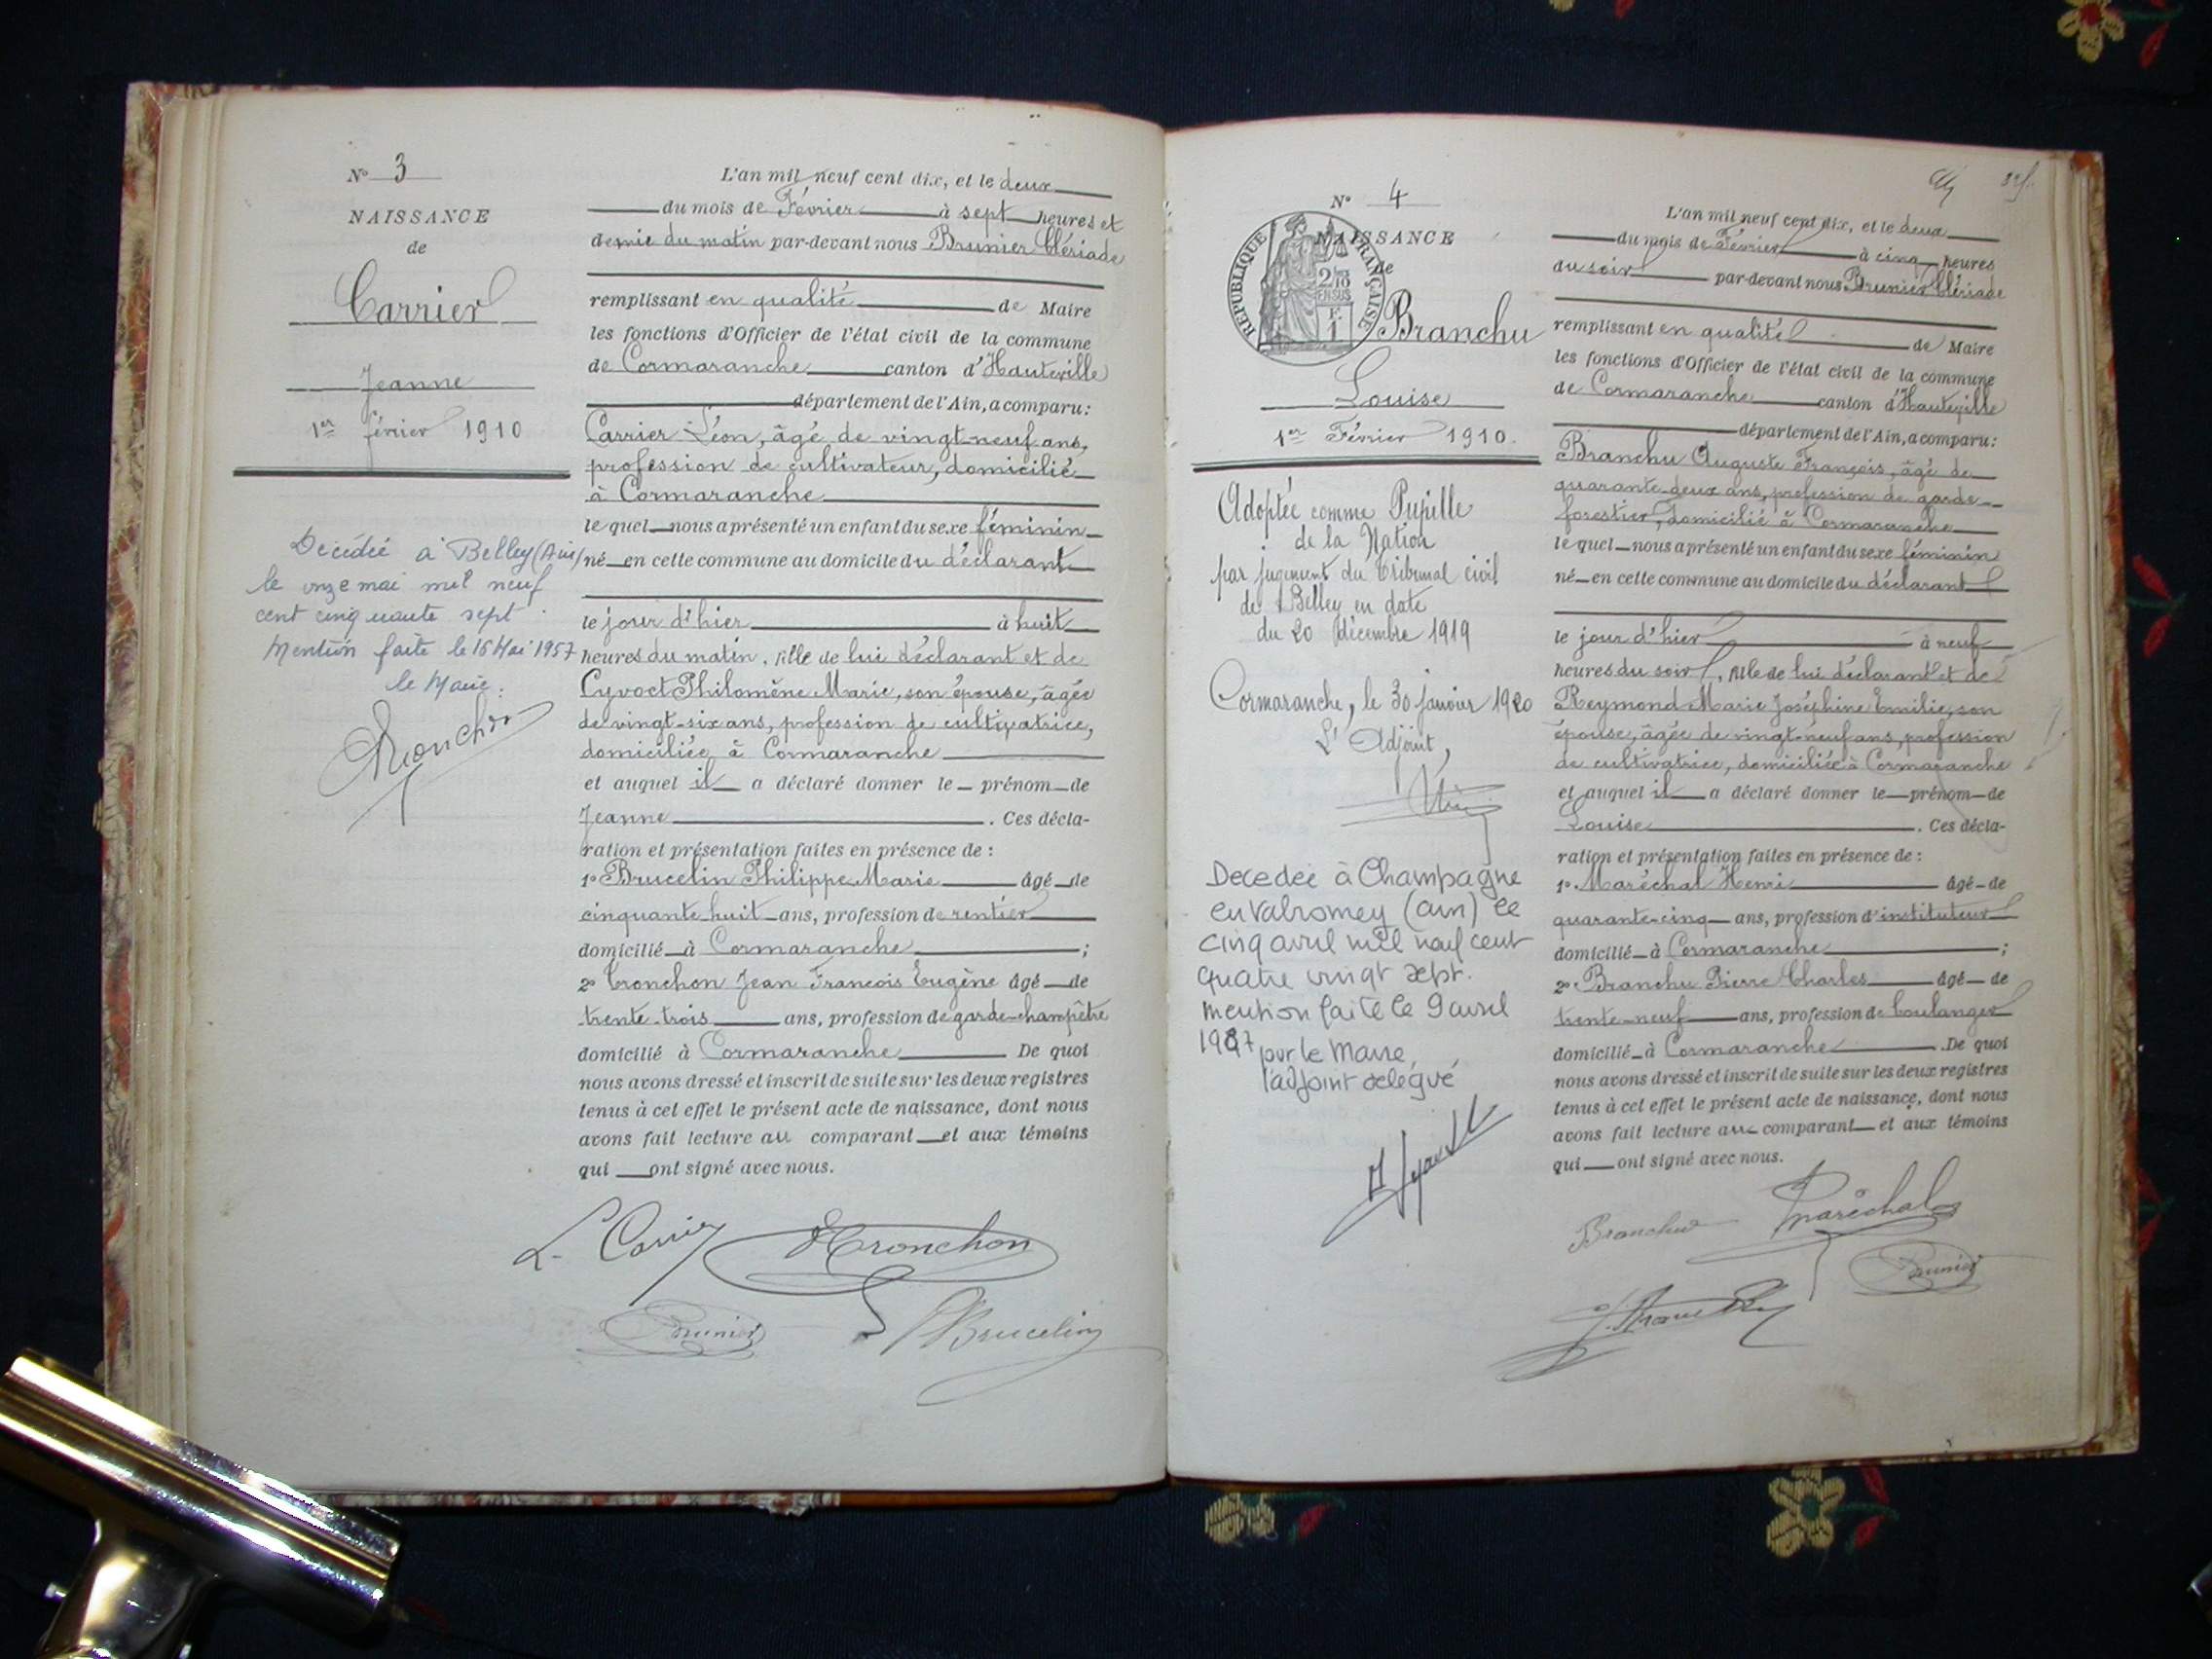 N° 3
NAISSANCE
de
Carrier
Jeanne
1er février 1910
Décédée à Belley (Ain)
le onze mai mil neuf
cent cinquante sept.
Mention faite le 16 Mai 1957
le Maire:
L'an mil neuf cent dix, et le deux
du mois de Février à sept heures et
demie du matin par-devant nous Brunier Clériade
remplissant en qualité de Maire
les fonctions d'Officier de l'état civil de la commune
de Cormaranche canton d'Hauteville
département de l'Ain, a comparu:
Carrier Léon, âgé de vingt-neuf ans,
profession de cultivateur, domicilié
à Cormaranche
le quel nous a présenté un enfant du sexe féminin
né en cette commune au domicile du déclarant
le jour d'hier à huit
heures du matin, fille de lui déclarant et de
Cyvoct Philomène Marie, son épouse, âgée
de vingt-six ans, profession de cultivatrice,
domiciliée à Cormaranche
et auquel il a déclaré donner le prénom de
Jeanne. Ces décla-
ration et présentation faites en présence de:
1° Brucelin Philippe Marie âgé de
cinquante-huit ans, profession de rentier
domicilié à Cormaranche;
2° Tronchon Jean François Eugène âgé de
trente-trois ans, profession de garde-champêtre
domicilié à Cormaranche De quoi
nous avons dressé et inscrit de suite sur les deux registres
tenus à cet effet le présent acte de naissance, dont nous
avons fait lecture au comparant et aux témoins
qui ont signé avec nous.
L. Carrier
Tronchon
Brunier
Brucelin
N° 4
NAISSANCE
de
REPUBLIQUE FRANÇAISE
2/10
EN SUS
F.
1
Branchu
Louise
1er Février 1910.
Adoptée comme Pupille
de la Nation
par jugement du Tribunal civil
de Belley en date
du 20 décembre 1919
Cormaranche, le 30 janvier 1920
L'Adjoint,
Decedée à Champagne
en Valromey (ain) le
cinq avril mil neuf cent
quatre vingt sept.
mention faite le 9 avril
1987 pour le Maire,
l'adjoint délégué
L'an mil neuf cent dix, et le deux
du mois de Février à cinq heures
du soir par-devant nous Brunier Clériade
remplissant en qualité de Maire
les fonctions d'Officier de l'état civil de la commune
de Cormaranche canton d'Hauteville
département de l'Ain, a comparu:
Branchu Auguste François, âgé de
quarante-deux ans, profession de garde-
forestier, domicilié à Cormaranche
le quel nous a présenté un enfant du sexe féminin
né en cette commune au domicile du déclarant
le jour d'hier à neuf
heures du soir, fille de lui déclarant et de
Reymond Marie Joséphine Emilie, son
épouse, âgée de vingt-neuf ans, profession
de cultivatrice, domiciliée à Cormaranche
et auquel il a déclaré donner le prénom de
Louise. Ces décla-
ration et présentation faites en présence de:
1° Maréchal Henri âgé de
quarante-cinq ans, profession d'instituteur
domicilié à Cormaranche;
2° Branchu Pierre Charles âgé de
trente-neuf ans, profession de boulanger
domicilié à Cormaranche. De quoi
nous avons dressé et inscrit de suite sur les deux registres
tenus à cet effet le présent acte de naissance, dont nous
avons fait lecture au comparant et aux témoins
qui ont signé avec nous.
Branchu
Maréchal
Brunier